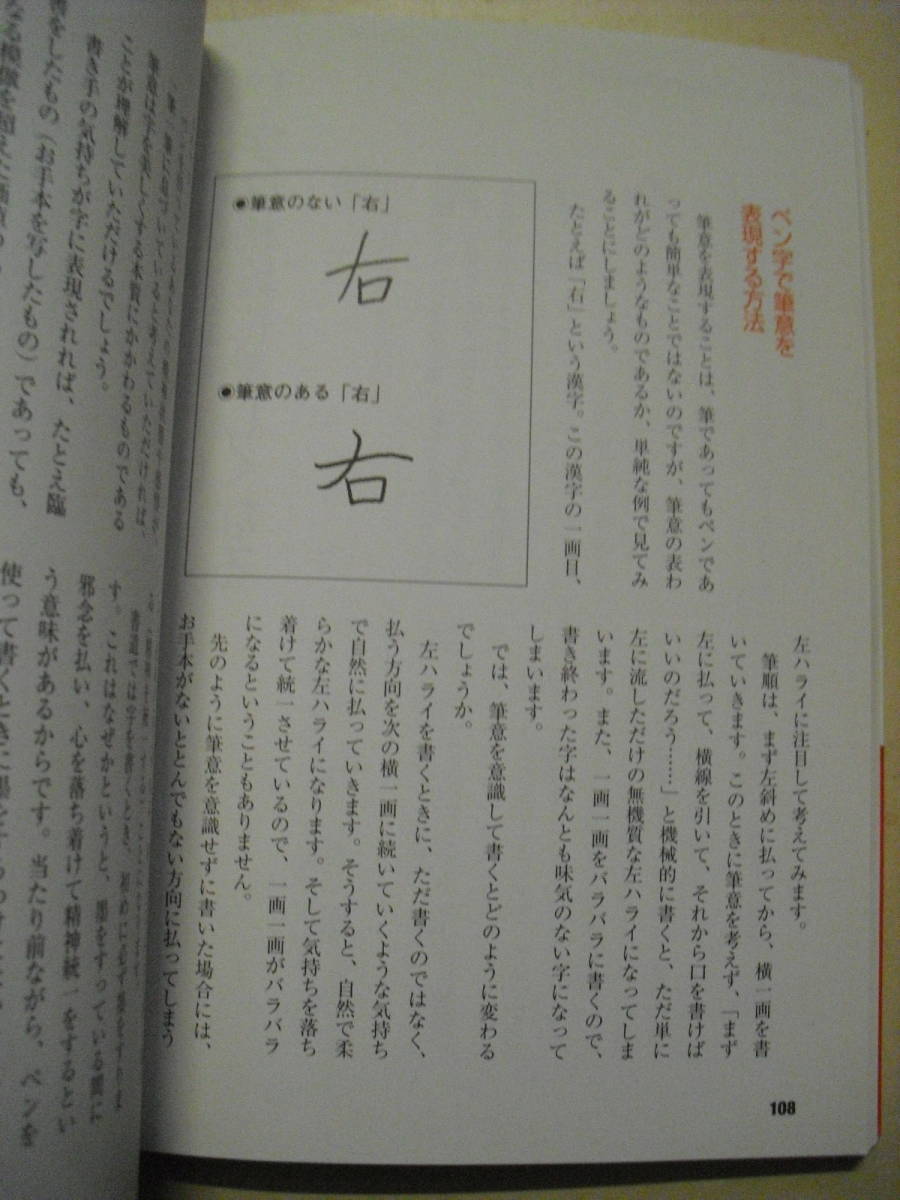 ペン字で筆意を
表現する方法
筆意を表現することは、筆であってもペンであ
っても簡単なことではないのですが、筆意の表わ
れがどのようなものであるか、単純な例で見てみ
ることにしましょう。
たとえば「右」という漢字。この漢字の一画目、
◉筆意のない「右」
右
◉筆意のある「右」
右
左ハライに注目して考えてみます。
筆順は、まず左斜めに払ってから、横一画を書
いていきます。このときに筆意を考えず、「まず
左に払って、横線を引いて、それから口を書けば
いいのだろう……」と機械的に書くと、ただ単に
左に流しただけの無機質な左ハライになってしま
います。また、一画一画をバラバラに書くので、
書き終わった字はなんとも味気のない字になって
しまいます。
では、筆意を意識して書くとどのように変わる
でしょうか。
左ハライを書くときに、ただ書くのではなく、
払う方向を次の横一画に続いていくような気持ち
で自然に払っていきます。そうすると、自然で柔
らかな左ハライになります。そして気持ちを落ち
着けて統一させているので、一画一画がバラバラ
になるということもありません。
先のように筆意を意識せずに書いた場合には、
お手本がないととんでもない方向に払ってしまう
108
筆意は字を美しくする本質にかかわるものである
ことが理解していただけるでしょう。
書き手の気持ちが字に表現されれば、たとえ臨
書をしたもの(お手本を写したもの)であっても、
す。これはなぜかというと、墨をすっている間に
邪念を払い、心を落ち着けて精神統一をするとい
う意味があるからです。当たり前ながら、ペンを